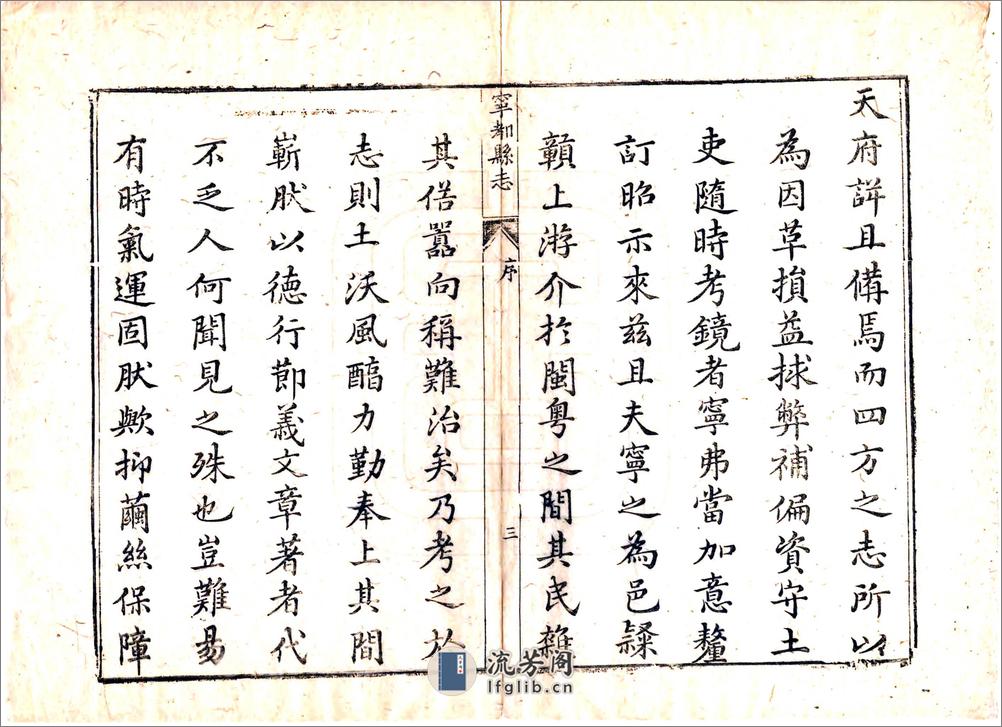 天府詳且備焉而四方之志所以
為因革損益捄弊補偏資守土
吏隨時考鏡者寧弗當加意釐
訂昭示來茲且夫寧之為邑隸
贛上游介於閩粵之間其民雜
寧都縣志
序
三
其俗囂向稱難治矣乃考之於
志則土沃風醕力勤奉上其間
嶄肰以德行節義文章著者代
不乏人何聞見之殊也豈難易
有時氣運固肰歟抑繭絲保障
流芳阁
lfglib.cn